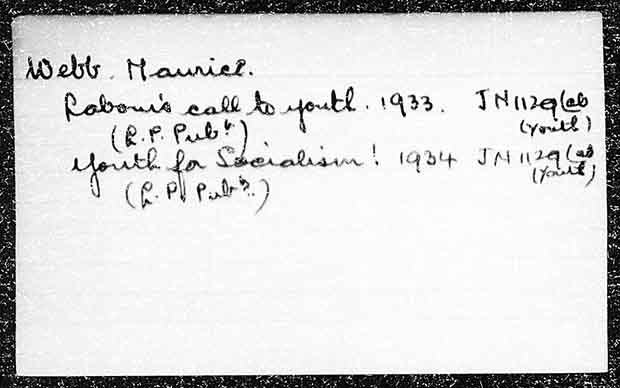 Webb. Maurice.
Labour's call to youth. 1933. JN 1129 Lab
(L.P. Pubn.) (Youth)
Youth for Socialism! 1934 JN 1129 Lab
(L.P. Pubn.) (Youth)